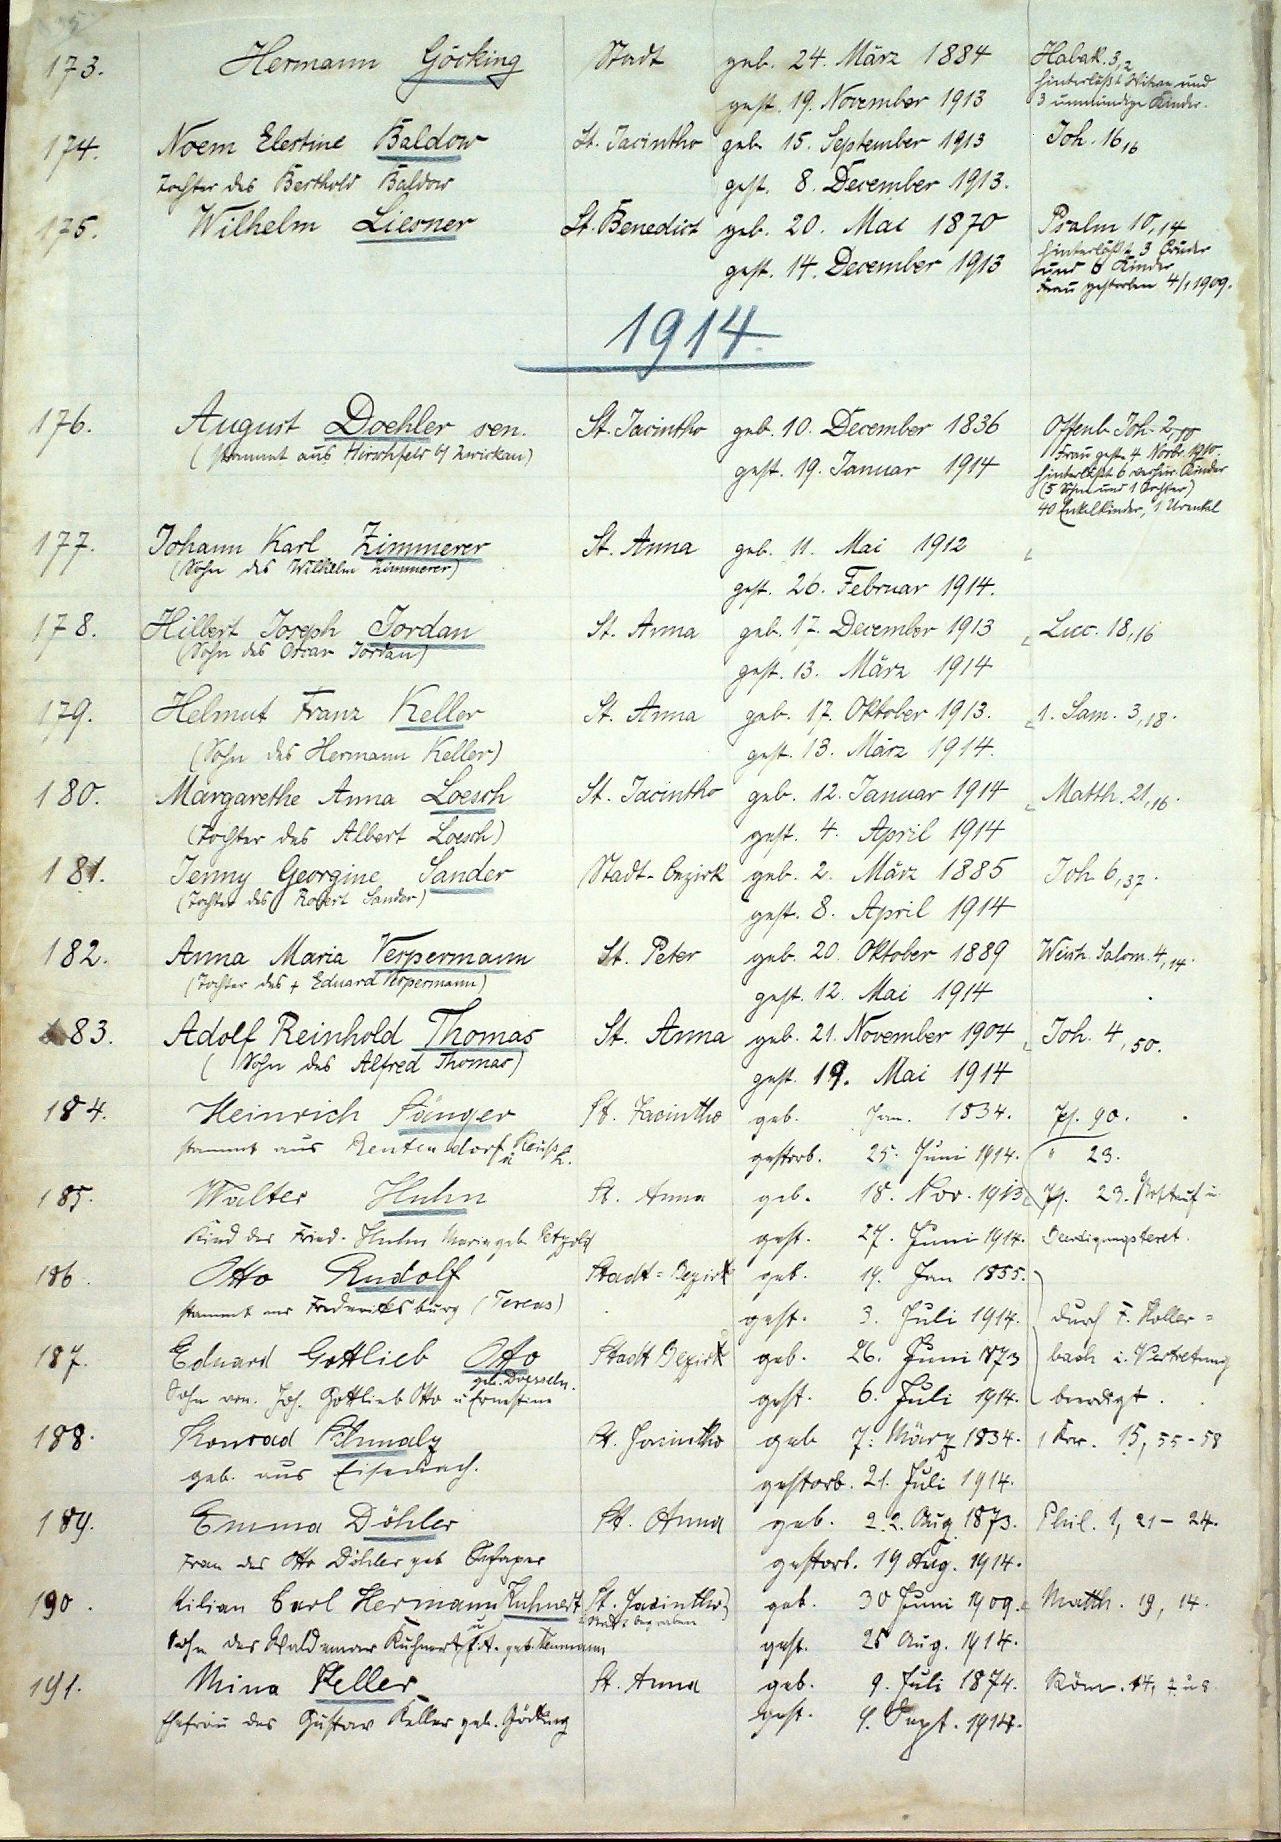 173. Hermann Göcking Stadt geb. 24. März 1884 Habak. 3,2
gest. 19. November 1913 hinterläßt Witwe und
3 unmündige Kinder.
174. Noem Elestine Baldow St. Jacintho geb. 15. September 1913 Joh. 16,16
Tochter des Berthold Baldow gest. 8. December 1913.
175. Wilhelm Liesner St. Benedict geb. 20. Mai 1870 Psalm 10,14
gest. 14. December 1913 hinterläßt 3 Brüder
und 6 Kinder
Frau gestorben 4/1 1909.
1914.
176. August Doehler sen. St. Jacintho geb. 10. December 1836 Offenb. Joh. 2,10
(stammt aus Hirschfeld b/ Zwickau) gest. 19. Januar 1914 Frau gest. 4 Novbr. 1910.
hinterläßt 6 verheir. Kinder
(5 Söhne und 1 Tochter)
40 Enkelkinder, 1 Urenkel
177. Johann Karl Zimmerer St. Anna geb. 11. Mai 1912
(Sohn des Wilhelm Zimmerer) gest. 26. Februar 1914.
178. Hilbert Joseph Jordan St. Anna geb. 17. December 1913 Luc. 18,16
(Sohn des Oscar Jordan) gest. 13. März 1914
179. Helmut Franz Keller St. Anna geb. 17. Oktober 1913. 1. Sam. 3,18.
(Sohn des Hermann Keller) gest. 13. März 1914.
180. Margarethe Anna Loesch St. Jacintho geb. 12. Januar 1914 Matth. 21,16.
(Tochter des Albert Loesch) gest. 4. April 1914
181. Jenny Georgine Sander Stadt-Bezirk geb. 2. März 1885 Joh 6,37.
(Tochter des Robert Sander) gest. 8. April 1914
182. Anna Maria Vespermann St. Peter geb. 20. Oktober 1889 Weish. Salom. 4,14.
(Tochter des † Eduard Vespermann) gest. 12. Mai 1914
183. Adolf Reinhold Thomas St. Anna geb. 21. November 1904 Joh. 4,50.
(Sohn des Alfred Thomas) gest. 19. Mai 1914
184. Heinrich Sänger St. Jacintho geb. Jan. 1834. Ps. 90.
stammt aus gestorb. 25. Juni 1914. " 23.
185. Walter Huhn St. Anna geb. 18. Nov. 1913 Ps. 23. Nottauf u
Kind des Fried. Huhn Marie geb. Petzold gest. 27. Juni 1914. Beerdigungsteret.
186. Otto Rudolf Stadt=Bezirk geb. 19. Jan 1855.
stammt aus Frederiksburg (Texas) gest. 3. Juli 1914. durch F. Koller=
187. Eduard Gottlieb Otto Stadt Bezirk geb. 26. Juni 1873 bach i. Vertretung
geb. Dresseln.
Sohn von Joh. Gottlieb Otto u Ernestine gest. 6. Juli 1914. beerdigt.
188. Konrad Schmalz St. Jacintho geb 7. März 1834. 1 Kor. 15, 55-58
geb. aus Eisenach. gestorb. 21. Juli 1914.
189. Emma Döhler St. Anna geb. 22. Aug 1873. Phil. 1, 21-24.
Frau des Otto Döhler geb Schaper gestorb. 19 Aug. 1914.
190. Kilian Carl Hermann Kuhnert St. Jacintho geb. 30 Juni 1909. Matth. 19, 14.
begraben
Sohn des Waldemar Kuhnert u geb. Neumann gest. 25 Aug. 1914.
191. Mina Keller St. Anna geb. 9. Juli 1874. Röm. 14, 7 u 8.
Ehefrau des Gustav Keller geb. Göcking gest. 9. Sept. 1914.